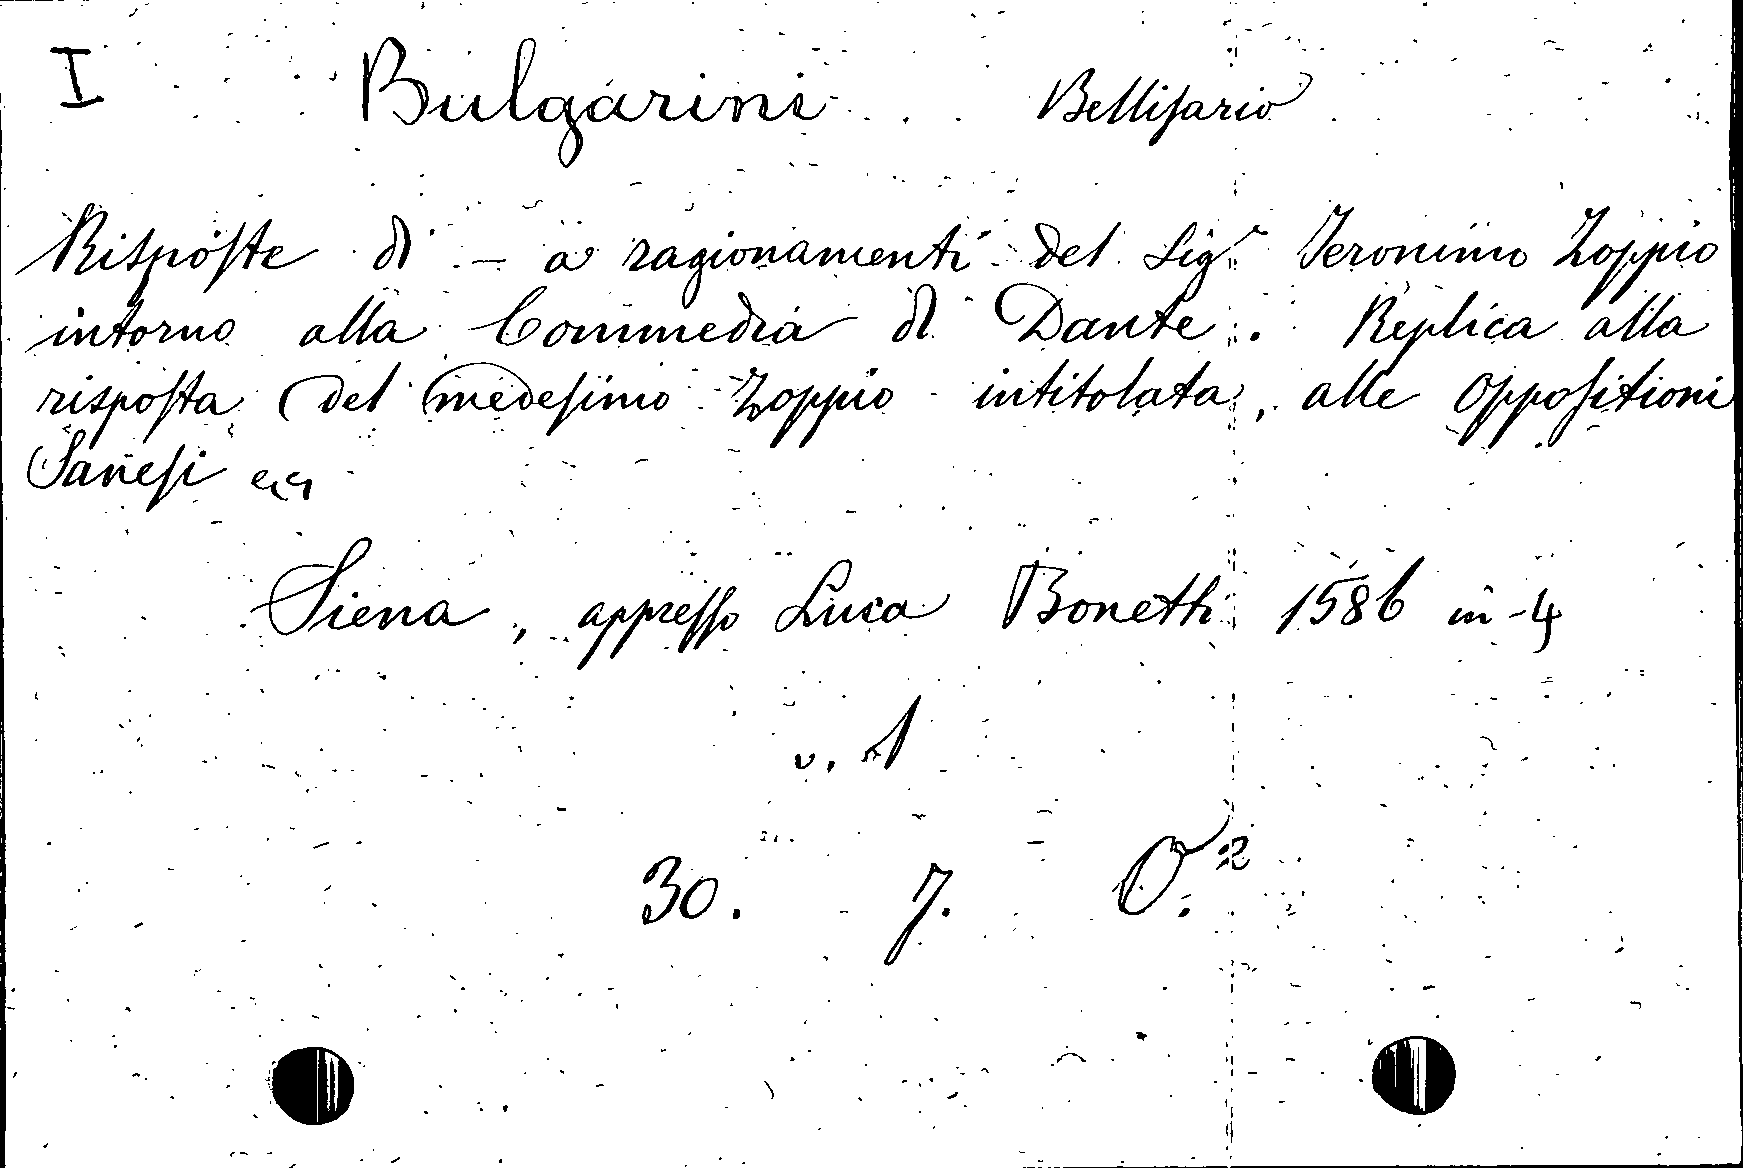 I Bulgarini Bellisario
Risposte di - a ragionamenti del Sig.r Ieronimo Zoppio
intorno alla Commedia di Dante. Replica alla
risposta del medesimo Zoppio intitolata, alle Oppositioni
Sanesi ecc
Siena, appresso Luca Bonetti 1586 in-4
v. 1
30. 7. O.2